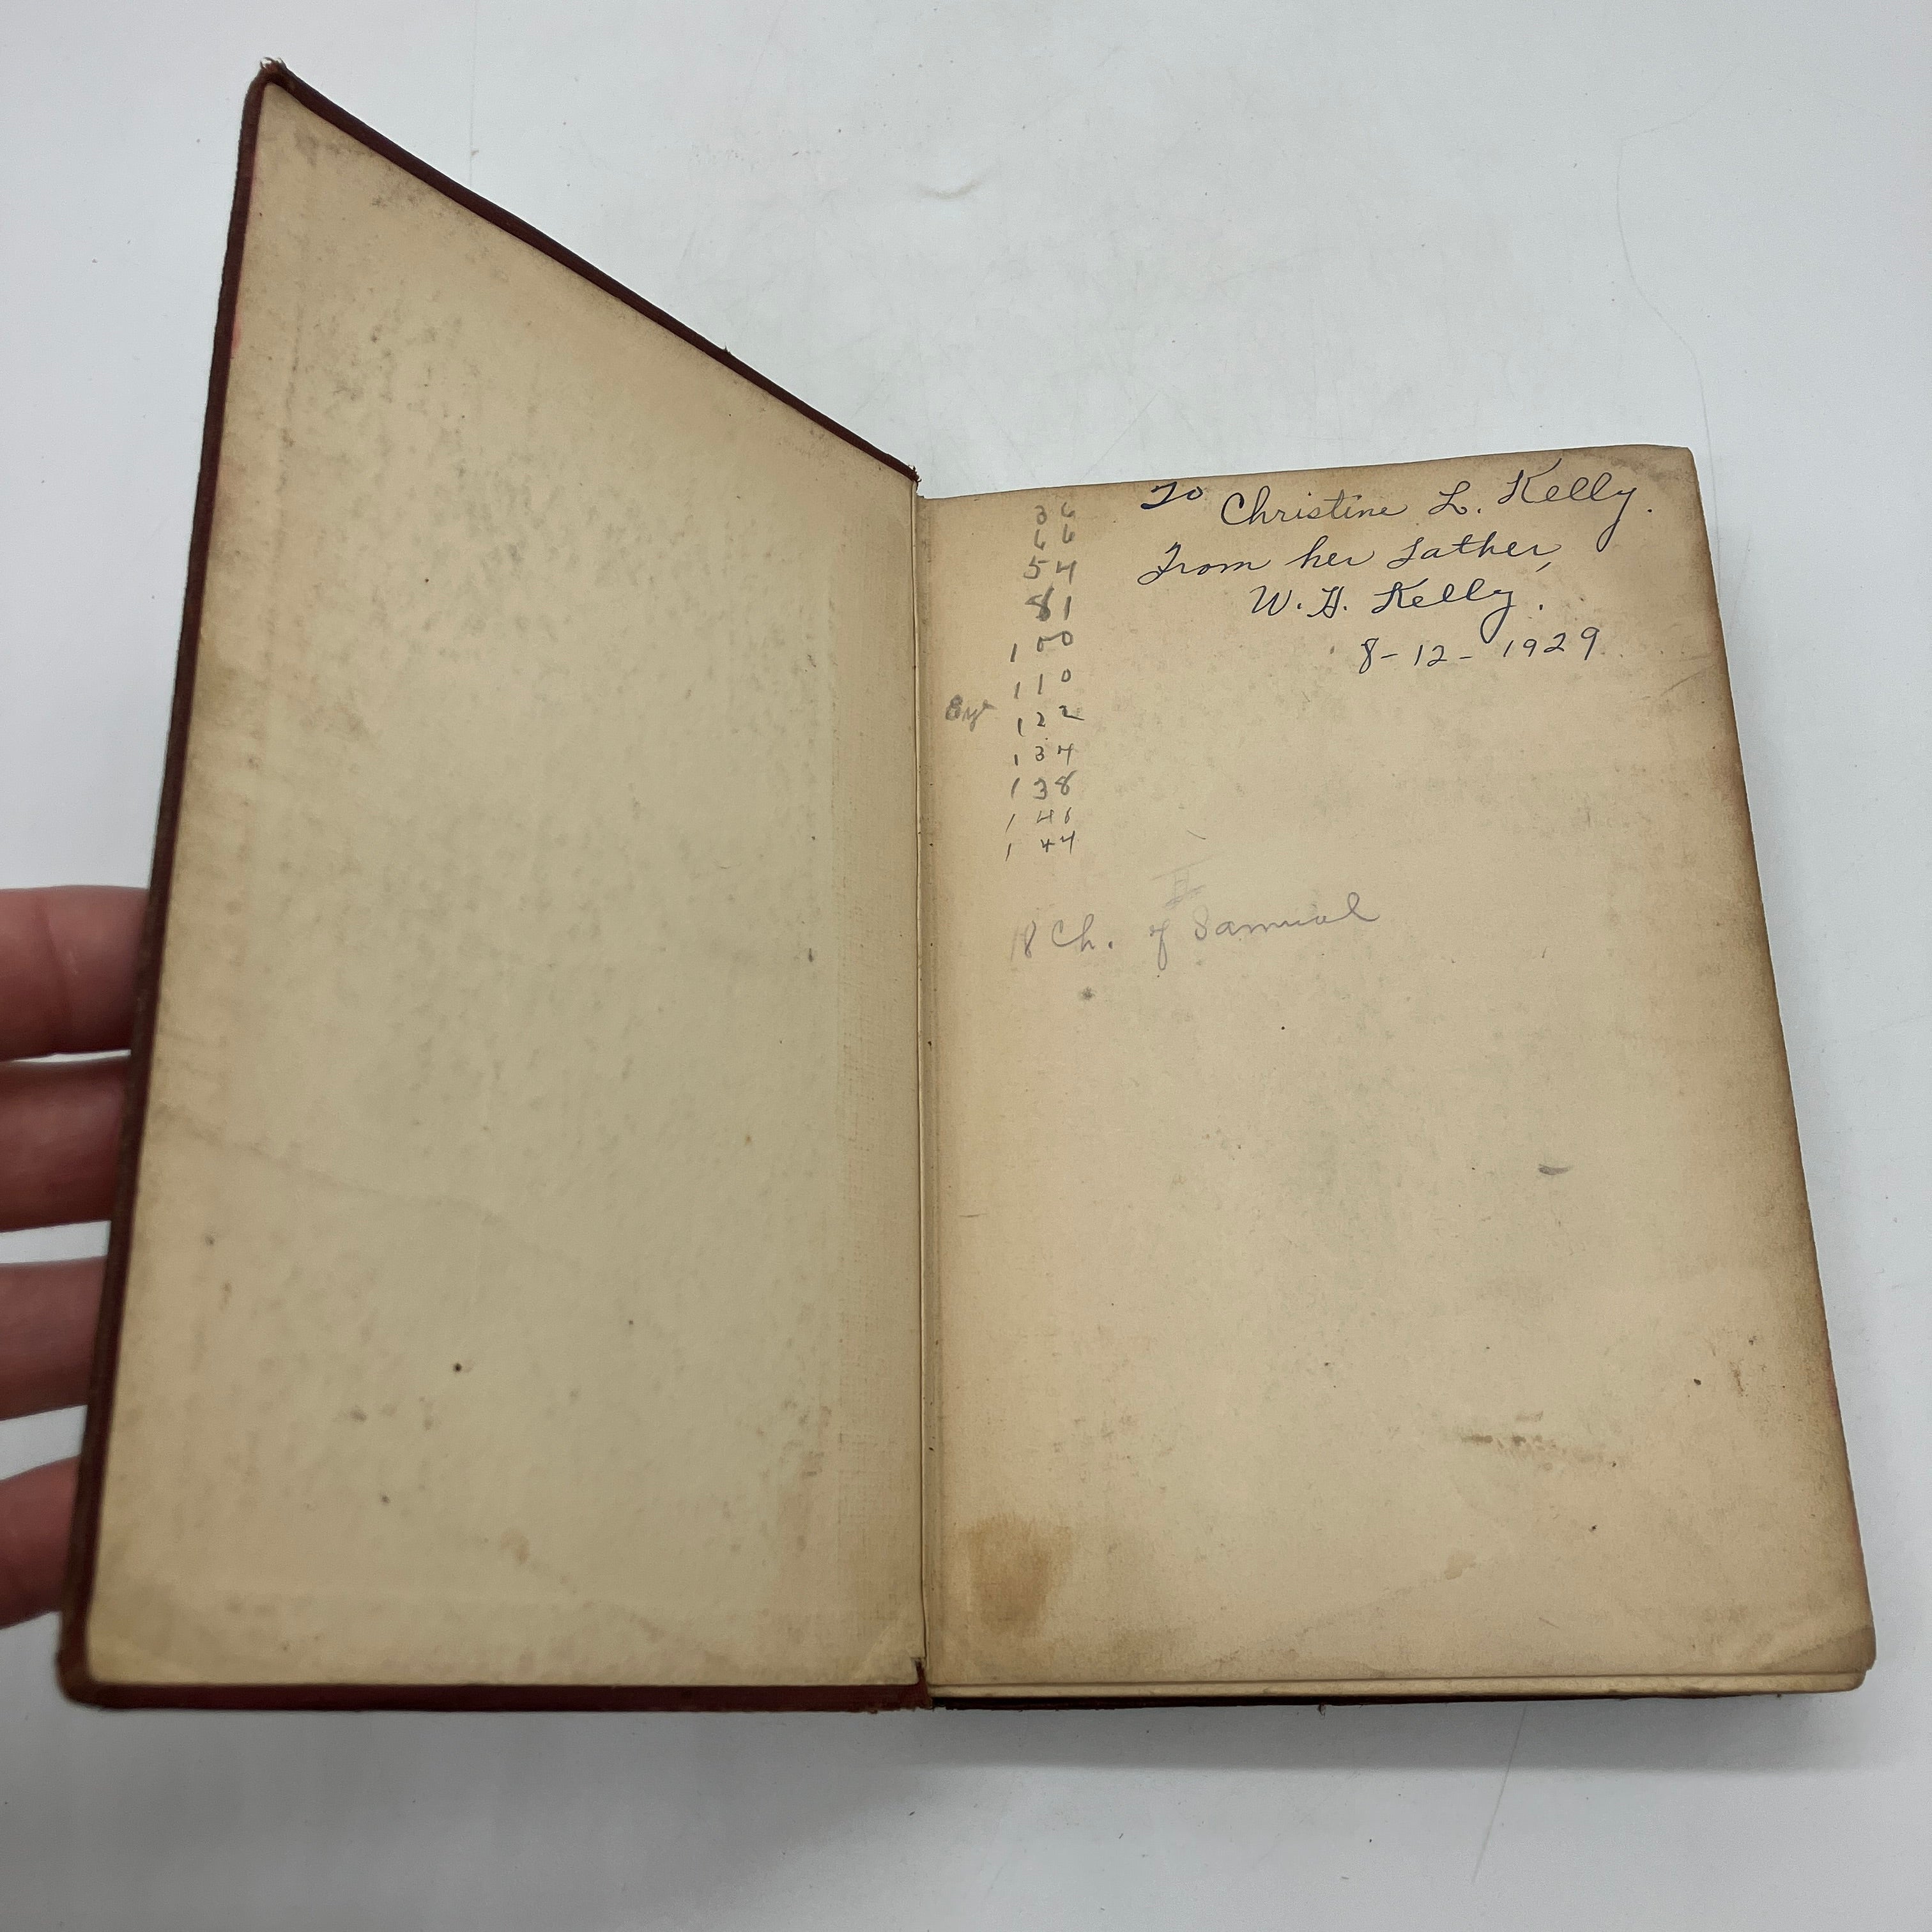 To Christine L. Kelly.
From her Father,
W. H. Kelly.
8-12-1929
36
66
54
81
100
110
122
134
138
146
144
II
18 Ch. of Samual